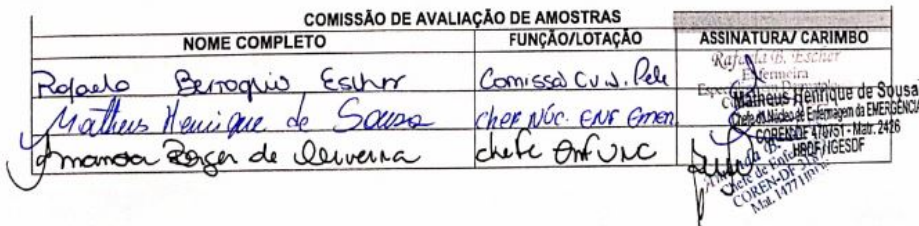 COMISSÃO DE AVALIAÇÃO DE AMOSTRAS
NOME COMPLETO FUNÇÃO/LOTAÇÃO ASSINATURA/ CARIMBO
Rafaela Escher Comissão Cui. Pele
Rafaela B. Escher
Enfermeira
Matheus Henrique de Sousa Chefe Núc. ENF Emer.
Matheus Henrique de Sousa
Chefe do Núcleo de Enfermagem da EMERGÊNCIA
COREN-DF 470751 - Matr. 2426
HBDF/IGESDF
Amanda de Oliveira chefe
Amanda B.
Chefe de Enfer
COREN-DF
Mat. 14771